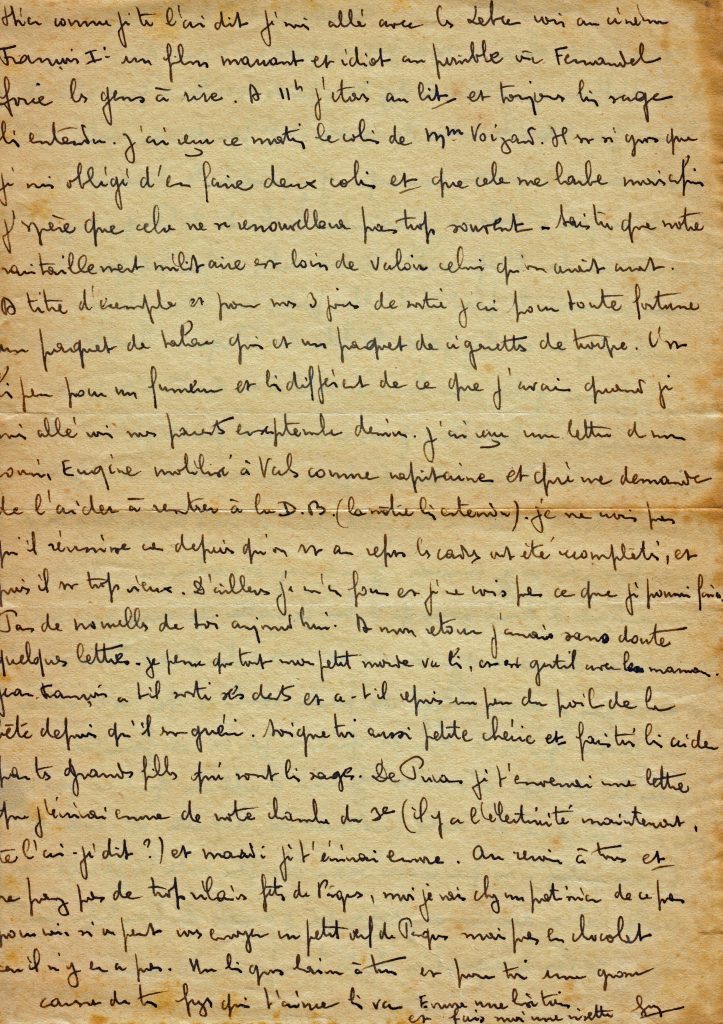 Hier comme je te l'ai dit je suis allé avec les Lebre voir au cinéma
François Ier un film marrant et idiot au possible où Fernandel
force les gens à rire. A 11h j'étais au lit et toujours bi sage
bi entendu. J'ai reçu ce matin le colis de Mme Voizard. Il est si gros que
je suis obligé d'en faire deux colis et que cela me barbe mais enfin
j'espère que cela ne se renouvellera pas trop souvent. Sais tu que notre
ravitaillement militaire est loin de valoir celui qu'on avait avant.
A titre d'exemple et pour nos 3 jours de sortie j'ai pour toute fortune
un paquet de tabac gris et un paquet de cigarettes de troupe. C'est
bi peu pour un fumeur et bi différent de ce que j'avais quand je
suis allé voir nos parents en septembre dernier. J'ai reçu une lettre de mon
cousin, Eugène mobilisé à Vals comme capitaine et qui me demande
de l'aider à rentrer à la D.B. (la notre bi entendu). Je ne crois pas
qu'il réussisse car depuis qu'on est au repos les cadres ont été recomplétés, et
puis il est trop vieux. D'ailleurs je m'en fous et je ne vois pas ce que je pourrai faire.
Pas de nouvelles de toi aujourd'hui. A mon retour j'aurais sans doute
quelques lettres. Je pense que tout mon petit monde va bi, et est gentil avec la maman.
Jean François a t'il sorti ses dents et a-t-il repris un peu du poil de la
bête depuis qu'il est guéri. Soigne toi aussi petite chérie et fais toi bi aider
par tes grands fills qui sont bi sages. De je t'enverrai une lettre
que j'écrirai encore de notre chambre du 3e (il y a l'électricité maintenant,
te l'ai-je dit ?) et mardi je t'écrirai encore. Au revoir à tous et
ne pas de trop fêtes de Pâques, moi je vais chez un patissier de ce pas
pour voir si on peut vous envoyer un petit œuf de Pâques mais pas en chocolat
car il n'y en a pas. Un bi gros baiser à tous et pour toi une grosse
caresse de ton qui t'aime bi va Encore une fois
et fais moi une risette